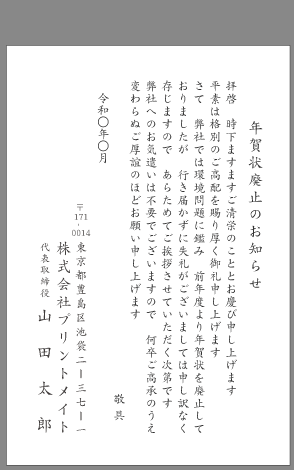 年賀状廃止のお知らせ
拝啓　時下ますますご清栄のこととお慶び申し上げます
平素は格別のご高配を賜り厚く御礼申し上げます
さて　弊社では環境問題に鑑み　前年度より年賀状を廃止して
おりましたが　行き届かずに失礼がございましては申し訳なく
存じますので　あらためてご挨拶させていただく次第です
弊社へのお気遣いは不要でございますので　何卒ご高承のうえ
変わらぬご厚誼のほどお願い申し上げます
敬具
令和〇年〇月
〒171-0014
東京都豊島区池袋二ー三七ー一
株式会社プリントメイト
代表取締役　山田太郎